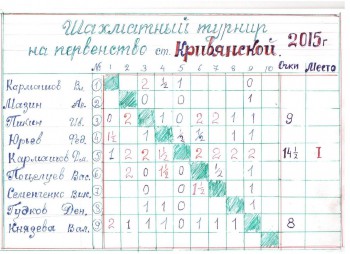 Шахматный турнир
на первенство ст. Кривянской. 2015г
№ 1 2 3 4 5 6 7 8 9 10 Очки Место
Кармашов Вл. 1 2 ½ 1 0
Мадин Ал. 2 0 0 1 0
Пикин Ив. 3 0 2 1 0 2 1 1 1 9
Юрьев 4 1½ 1
Кармашов 5 1 2 2 1½ 2 2 2 2 14½ I
Поцелуев 6 2 0 0 1 1
Семенченко 7 0 1½ 1 0
Гудков Ден. 8 1 1 0 0 1
Князева Вал. 9 2 1 1 1 0 1 1 1 8